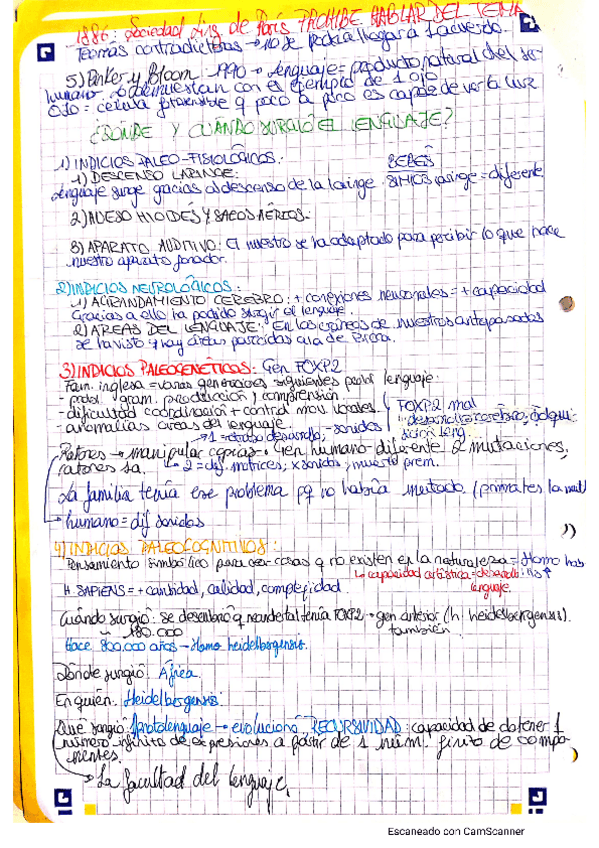 1886: Sociedad Ling. de París PROHIBE HABLAR DEL TEMA
Teorías contradictorias → no se podía llegar a 1 acuerdo.
5) Pinker y Bloom 1990 → Lenguaje = producto natural del ser
humano. Lo demuestran con el ejemplo de 1 ojo
Ojo = célula fotosensible q poco a poco es capaz de ver la luz
¿DÓNDE Y CUÁNDO SURGIÓ EL LENGUAJE?
1) INDICIOS PALEO-FISIOLÓGICOS:
1) DESCENSO LARINGE: BEBÉS
Lenguaje surge gracias al descenso de la laringe. SIMIOS laringe = diferente
2) HUESO HIOIDES Y SACOS AÉREOS.
3) APARATO AUDITIVO: El nuestro se ha adaptado para percibir lo que hace
nuestro aparato fonador.
2) INDICIOS NEUROLÓGICOS:
1) AGRANDAMIENTO CEREBRO: + conexiones neuronales = + capacidad
Gracias a ello ha podido surgir el lenguaje.
2) ÁREAS DEL LENGUAJE: En los cráneos de nuestros antepasados
se ha visto q hay áreas parecidas a la de Broca.
3) INDICIOS PALEOGENÉTICOS: Gen FOXP2
Fam. inglesa = varias generaciones siguientes probl lenguaje.
- probl gram. producción y comprensión.
- dificultad coordinación + control mov. vocales. FOXP2 mal
- anomalías áreas del lenguaje. desarrollo cerebro, adqui-
sición leng.
→ 1 = retraso desarrollo, - sonidos
Ratones → manipular copias. Gen humano diferente 2 mutaciones.
ratones 1a. → 2 = dif. motrices, x sonidos, muerte prem.
La familia tenía ese problema pq no había mutado (primates la mut)
→ humano = dif sonidos
4) INDICIOS PALEOCOGNITIVOS:
Pensamiento simbólico para ver cosas q no existen en la naturaleza = Homo has
→ capacidad artística = desarrollo
lenguaje.
H. SAPIENS = + cantidad, calidad, complejidad.
Cuándo surgió: se descubrió q neandertal tenía FOXP2 → gen anterior (h. heidelbergensis).
180.000 también
Hace 800.000 años → Homo heidelbergensis.
Dónde surgió: África.
En quién: Heidelbergensis.
Qué surgió: Protolenguaje → evolucionó RECURSIVIDAD: capacidad de obtener 1
número infinito de expresiones a partir de 1 núm. finito de compo-
nentes.
→ La facultad del lenguaje.
Escaneado con CamScanner